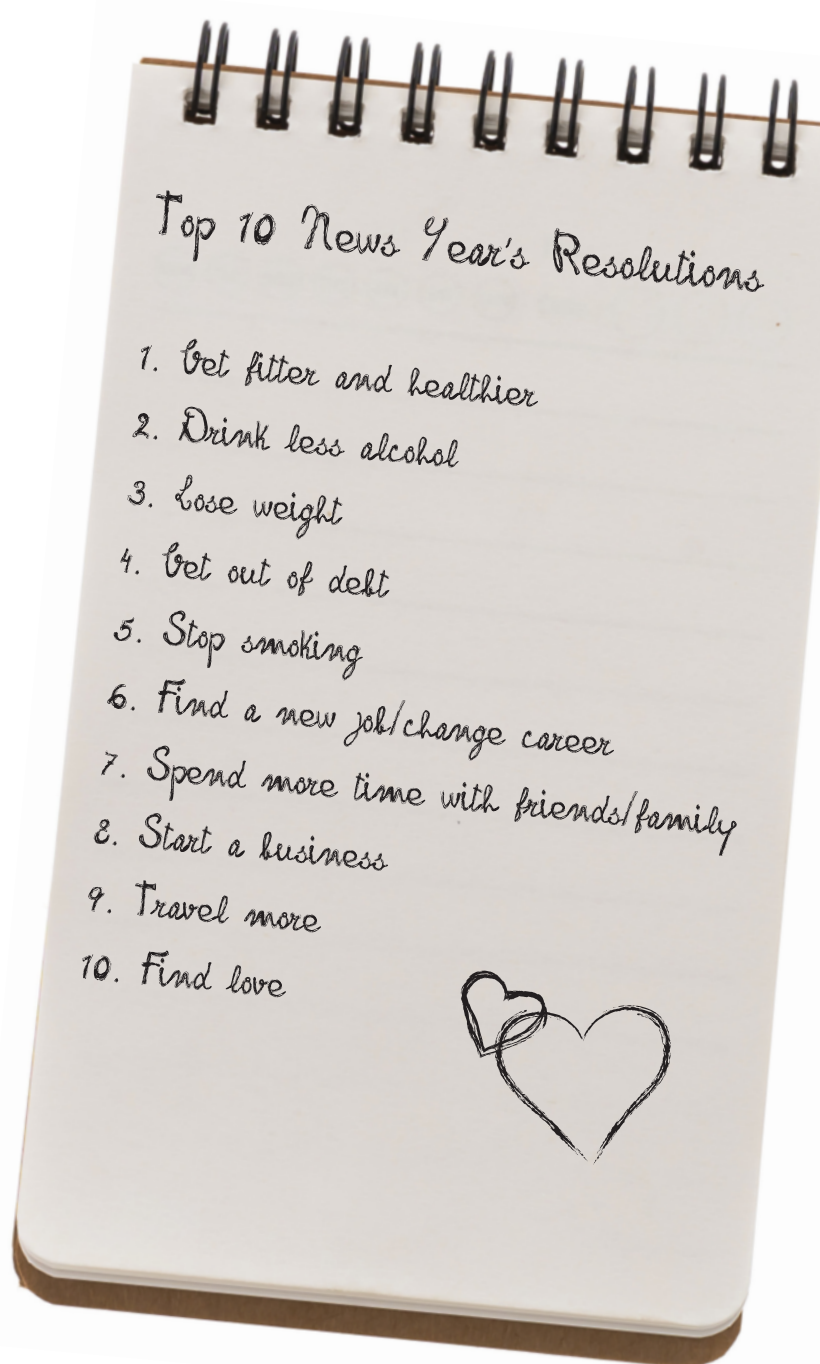 Top 10 News Year's Resolutions
1. Get fitter and healthier
2. Drink less alcohol
3. Lose weight
4. Get out of debt
5. Stop smoking
6. Find a new job/change career
7. Spend more time with friends/family
8. Start a business
9. Travel more
10. Find love